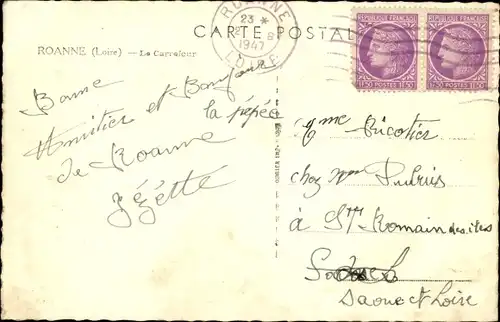 CARTE POSTALE
ROANNE (Loire) — Le Carrefour
ROANNE
23 *
8
1947
LOIRE
REPUBLIQUE FRANÇAISE REPUBLIQUE FRANÇAISE
1F50 POSTES 1F50 1F50 POSTES 1F50
Bonne
Amitier et Bonjour
la pépée
de Roanne
Zézette
Mme Ricotier
chez Mme Dubris
à St Romain des iles
Saone et Loire